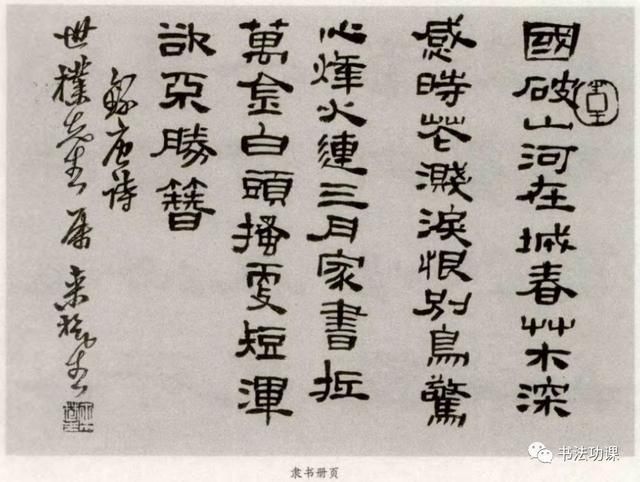 國破山河在城春艸木深
感時花濺淚恨別鳥驚
心烽火連三月家書抵
萬金白頭搔更短渾
欲不勝簪
錄唐詩
世樸先生属 來楚生
隶书册页
书法功课